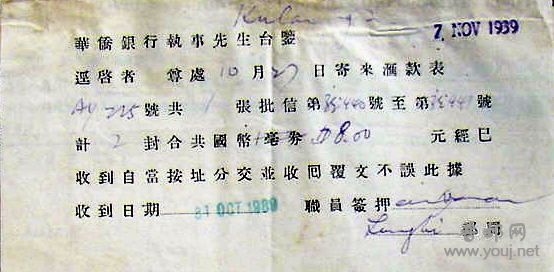 7 NOV 1939
華僑銀行執事先生台鑒
逕啓者 尊處10月27日寄來滙款表
AU 225號共1張批信第 號至第 號
計2封合共國幣 券 8.00 元經已
收到自當按址分交並收回覆文不誤此據
收到日期 31 OCT 1939 職員簽押
郵局
www.youj.net